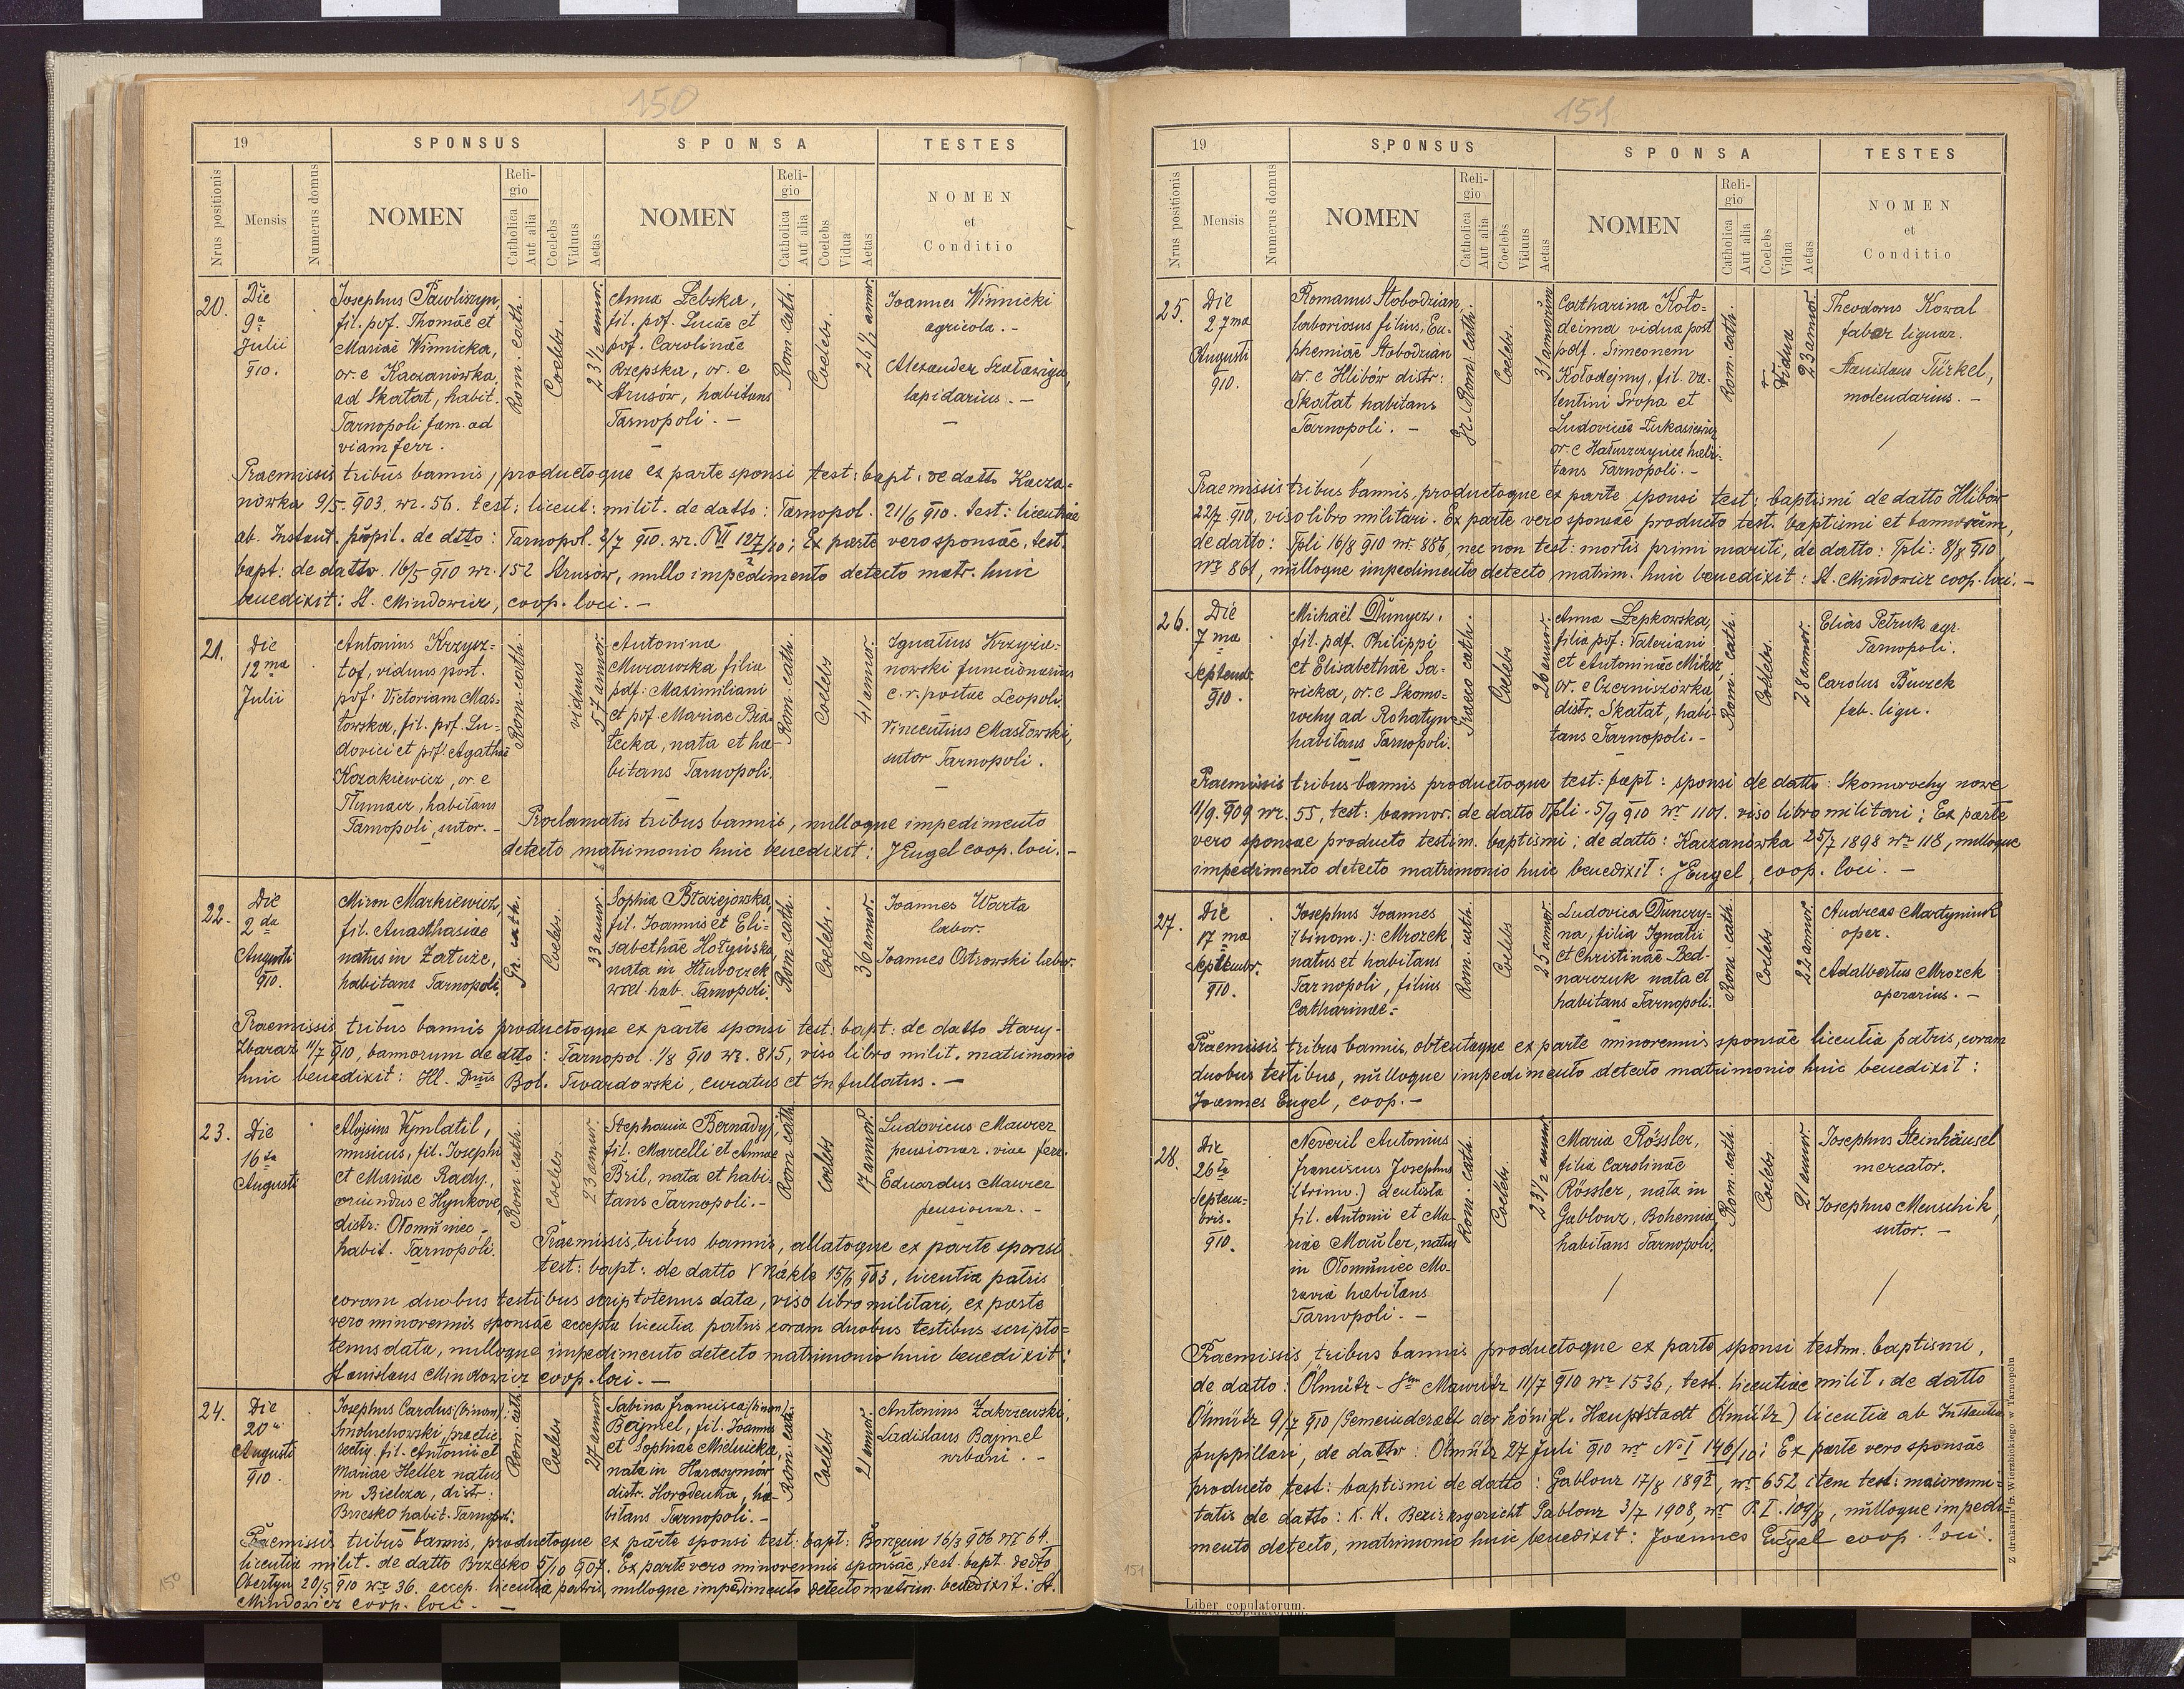 150
19
SPONSUS
SPONSA
TESTES
Nrus positionis
Mensis
Numerus domus
NOMEN
Religio
Catholica
Aut alia
Coelebs
Viduus
Aetas
NOMEN
Religio
Catholica
Aut alia
Coelebs
Vidua
Aetas
NOMEN
et
Conditio
20.
Die
9a
Julii
910.
Josephus Pawliszyn
fil. pdf. Thomae et
Mariae Winnicka,
or. e Kaczanówka
ad Skałat, habit.
Tarnopoli fam. ad
viam ferr.
Rom. cath.
Coelebs.
23 1/2 annor.
Anna Zebska,
fil. pdf. Lucae et
pdf. Carolinae
Rzepska, or. e
Strusów, habitans
Tarnopoli. -
Rom. cath.
Coelebs.
26 1/2 annor.
Joannes Winnicki
agricola. -
Alexander
lapidarius. -
Praemissis tribus bannis, productoque ex parte sponsi test: bapt: de datto Kacza-
nówka 9/5 903. nr. 56. test: licent: milit. de datto: Tarnopol. 21/6 910. test: licentiae
ab. Instant. pupil. de dtto: Tarnopol. 2/7 910. nr. P VI 127/10; Ex parte vero sponsae, test.
bapt: de datto 16/5 910 nr. 152 Strusów, nullo impedimento detecto matr. huic
benedixit: St. Mindowicz, coop. loci. -
21.
Die
12ma
Julii
Antonius Krzysz-
tof, viduus post.
pdf: Victoriam Mas-
towska, fil. pdf. Lu-
dovici et pdf. Agathae
Kozakiewicz, or. e
Tłumacz, habitans
Tarnopoli, sutor. -
Rom. cath.
viduus
57 annor.
Antonina
Murawska filia
pdf: Maximiliani
et pdf. Mariae Bia-
łecka, nata et ha-
bitans Tarnopoli.
Rom. cath.
Coelebs
41 annor.
Ignatius Krzyża-
nowski funccionarius
c. r. postae Leopoli.
Vincentius Masłowski,
sutor Tarnopoli.
Proclamatis tribus bannis, nulloque impedimento
detecto matrimonio huic benedixit: J Engel coop. loci. -
22.
Die
2da
Augusti
910.
Miron Markiewicz,
fil. Anasthasiae
natus in Załuże,
habitans Tarnopoli.
Gr. cath.
Coelebs.
33 annor.
Sophia Błażejowska,
fil. Joannis et Eli-
sabethae Hołyńska
nata in Hłuboczek
wiel. hab. Tarnopoli.
Rom. cath.
Coelebs.
36 annor.
Joannes Warta
labor.
Joannes Ostrowski labor.
Praemissis tribus bannis productoque ex parte sponsi test: bapt: de datto Stary-
Zbaraż 11/7 910, bannorum de dtto: Tarnopol. 1/8 910 nr. 815, viso libro milit. matrimonio
huic benedixit: Ill. Dnus Bol. Twardowski, curatus et Infullatus. -
23.
Die
16ta
Augusti
Aloysius Vymlatil,
musicus, fil. Josephi
et Mariae Rady,
oriundus e Hynkove,
distr: Ołomuniec -
habit. Tarnopoli.
Rom. cath.
Coelebs.
23 annor.
Stephania Bernady,
fil. Marcelli et Annae
Bril, nata et habi-
tans Tarnopoli. -
Rom. cath.
Coelebs
17 annor.
Ludovicus Maurer
pensionar. viae ferr.
Eduardus Maurer
pensionar. -
Praemissis tribus bannis, allatoque ex parte sponsi
test: bapt: de datto V Nákle 15/6 903, licentia patris
coram duobus testibus scriptotenus data, viso libro militari, ex parte
vero minorennis sponsae accepta licentia patris coram duobus testibus scripto-
tenus data, nulloque impedimento detecto matrimonio huic benedixit:
Stanislaus Mindowicz coop. loci. -
24.
Die
20a
Augusti
910.
Josephus Carolus (binom):
Smoluchowski, practic.
rectig. fil. Antonii et
Mariae Heller natus
in Bielcza, distr:
Brzesko habit. Tarnopoli.
Rom. cath.
Coelebs
27 annor
Sabina Francisca (binom):
Baymel, fil. Joannis
et Sophiae Mielnicka,
nata in Harasymów
distr. Horodenka, ha-
bitans Tarnopoli. -
Rom. cath.
Coelebs
21 annor.
Antonius Zakrzewski,
Ladislaus Baymel
urbani. -
Praemissis tribus bannis, productoque ex parte sponsi test: bapt: Borzęcin 16/3 906 nr 64.
licentia milit. de datto Brzesko 5/10 907. Ex parte vero minorennis sponsae, test. bapt. de dtto
Obertyn 20/5 910 nr 36. accep. licentia patris, nulloque impedimento detecto matrim. benedixit: St.
Mindowicz coop. loci. -
150
151
19
SPONSUS
SPONSA
TESTES
Nrus positionis
Mensis
Numerus domus
NOMEN
Religio
Catholica
Aut alia
Coelebs
Viduus
Aetas
NOMEN
Religio
Catholica
Aut alia
Coelebs
Vidua
Aetas
NOMEN
et
Conditio
25.
Die
27ma
Augusti
910.
Romanus Słobodzian
laboriosus filius, Eu-
phemiae Słobodzian
or. e Hlibów distr:
Skałat habitans
Tarnopoli. -
Gr. Rom. cath.
Coelebs.
31 annorum
Catharina Koło-
dejma vidua post
pdf. Simeonem
Kołodejmy, fil. Va-
lentini Sropa et
Ludovicae Łukasiewicz
or. e Hałuszczyńce habi-
tans Tarnopoli. -
Rom. cath.
Vidua
23 annor.
Theodorus Kowal
faber lignar.
Stanislaus Türkel,
molendarius. -
Praemissis tribus bannis, productoque ex parte sponsi test: baptismi de datto Hlibów
22/7 910, viso libro militari. Ex parte vero sponsae producto test. baptismi et bannorum,
de datto: Tpli 16/8 910 nr. 886, nec non test: mortis primi mariti, de datto: Tpli: 8/8 910,
Nr 861, nulloque impedimento detecto matrim. huic benedixit: St. Mindowicz coop. loci. -
26.
Die
7ma
Septembr.
910.
Michaël Dunycz,
fil. pdf. Philippi
et Elisabethae Sa-
wicka, or. e Skomo-
rochy ad Rohatyn
habitans Tarnopoli.
Graeco cath.
Coelebs
26 annor.
Anna Lepkowska,
filia pdf: Valeriani
et Antoninae Miksz,
or. e Czerniszówka,
distr. Skałat, habi-
tans Tarnopoli. -
Rom. cath.
Coelebs.
28 annor.
Elias Petruk agr.
Tarnopoli.
Carolus Buczek
fab. lign.
Praemissis tribus bannis productoque test: bapt: sponsi de datto: Skomorochy nowe
11/9 909 nr. 55, test: bannor. de datto Tpli - 5/9 910 Nr 1101. viso libro militari; Ex parte
vero sponsae producto testim. baptismi; de datto: Kaczanówka 25/7 1898 Nr 118, nulloque
impedimento detecto matrimonio huic benedixit: J Engel, coop. loci. -
27.
Die
17ma
Septembr.
910.
Josephus Joannes
(binom.): Mrozek
natus et habitans
Tarnopoli, filius
Catharinae.
Rom. cath.
Coelebs
25 annor.
Ludovica Dunczy-
na, filia Ignatii
et Christinae Bed-
narczuk nata et
habitans Tarnopoli.
Rom. cath.
Coelebs
22 annor.
Andreas Martyniuk
oper.
Adalbertus Mrozek
operarius. -
Praemissis tribus bannis, obtentaque ex parte minorennis sponsae licentia patris, coram
duobus testibus, nulloque impedimento detecto matrimonio huic benedixit:
Joannes Engel, coop. -
28.
Die
26ta
Septem-
bris.
910.
Neveril Antonius
Franciscus Josephus
(trinom.) dentista
fil. Antonii et Ma-
riae Mauler, natus
in Ołomuniec Mo-
ravia habitans
Tarnopoli. -
Rom. cath.
Coelebs.
23 1/2 annor
Maria Rössler,
filia Carolinae
Rössler, nata in
Gablonz, Bohemia,
habitans Tarnopoli.
Rom. cath.
Coelebs.
21 annor.
Josephus Steinhäusel
mercator.
Josephus Menschik,
sutor. -
Praemissis tribus bannis productoque ex parte sponsi testm. baptismi,
de datto: Ölmütz - Mauritz 11/7 910 Nr 1536, test. licentiae milit. de datto
Ölmütz 9/7 910 (Gemeinderath der königl. Hauptstadt Ölmütz) licentia ab Instantia
puppillari, de datto: Ölmütz 27 Juli 910 nr No I 146/10; Ex parte vero sponsae
producto test: baptismi de datto: Gablonz 17/8 1892, nr 652 item test: maiorenni-
tatis de datto: K. K. Bezirksgericht Gablonz 3/7 1908, nr P. I. 109/8, nulloque impedi-
mento detecto, matrimonio huic benedixit: Joannes Engel coop. loci.
151
Liber copulatorum.
Z drukarni Fr. Wierzbickiego w Tarnopolu